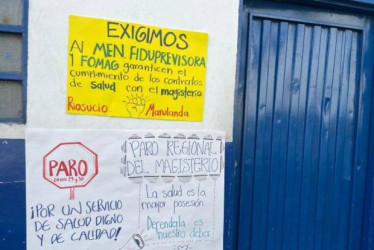 EXIGIMOS
Al MEN FIDUPREVISORA
Y FOMAG garanticen el
cumplimiento de los contratos
de salud con el magisterio
Riosucio Marulanda
PARO
29 y 30
¡POR UN SERVICIO
DE SALUD DIGNO
Y DE CALIDAD!
PARO REGIONAL
DEL MAGISTERIO
La salud es la
mayor posesión.
Defenderla es
nuestro deber